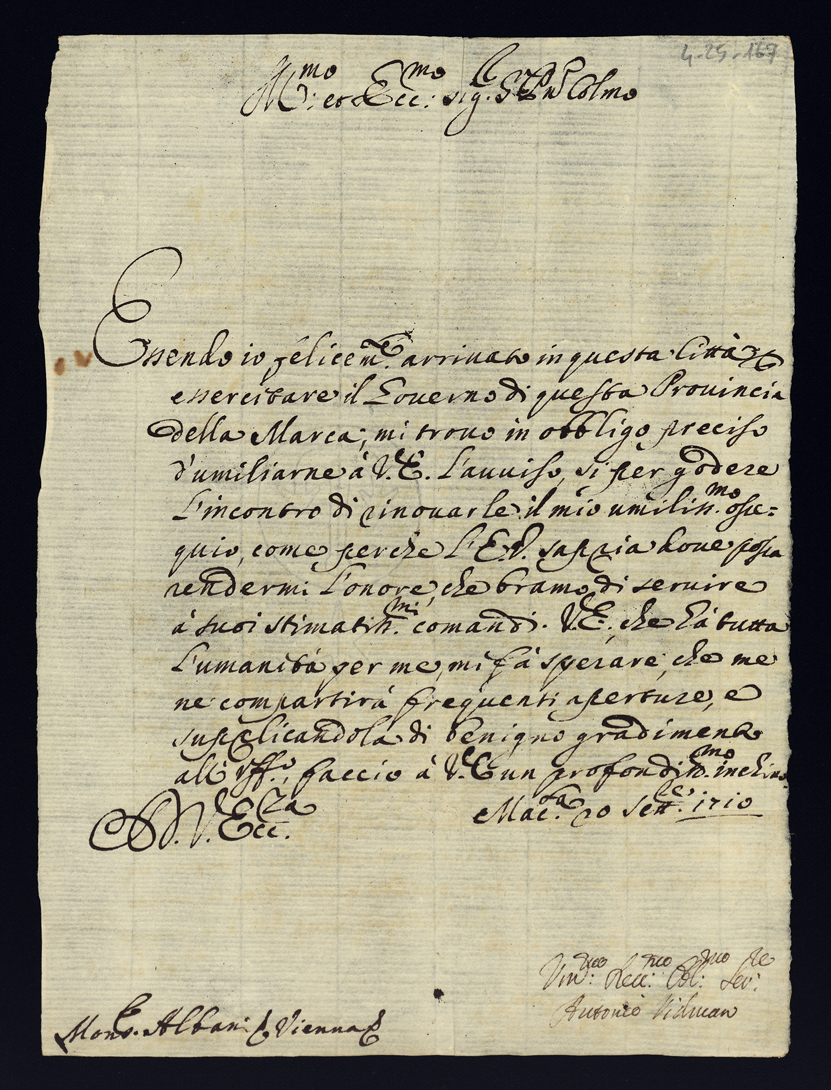 4-25-167
Ill:mo et Ecc:mo Sig.r Sig.r P̃rõn Colmo
Essendo io felicem.te arrivato in questa Città
essercitare il Governo di questa Provincia
della Marca, mi trovo in obbligo preciso
d'umiliarne à V.E. l'avviso, sì per godere
l'incontro di rinovarle il mio umiliss.mo osse=
quio, come perche l'E.V. sappia dove possa
rendermi l'onore, che bramo di servire
à suoi stimatiss.mi comandi. V.E., che hà tutta
l'umanità per me, mi fà sperare, che me
ne compartirà frequenti aperture, e
supplicandola di benigno gradimento
all' Uff.o, faccio à V.E. un profondiss.mo inchino.
D. V. Ecc.za
Mac.ta 20 Sett.e 1710
Um:mo Obl:mo Ser:re
Antonio Vidman
Mons.r Albani Vienna